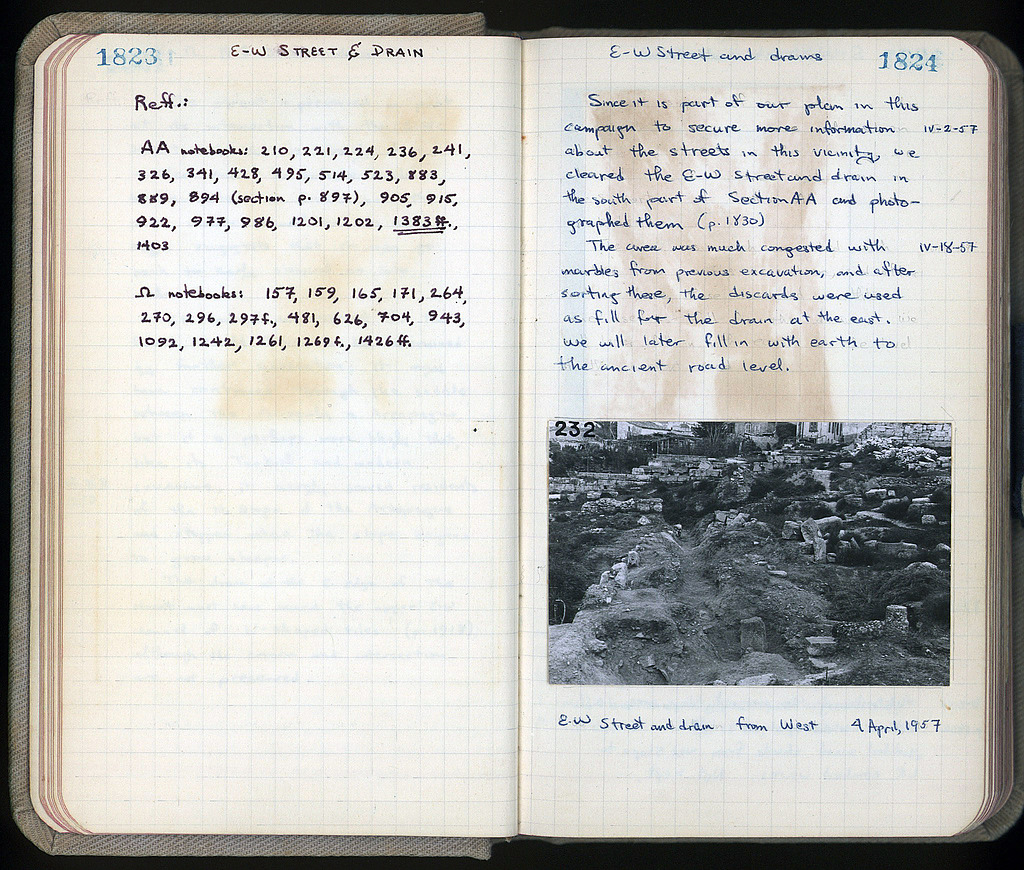 1823
E-W STREET & DRAIN
Reff.:
AA notebooks: 210, 221, 224, 236, 241,
326, 341, 428, 495, 514, 523, 883,
889, 894 (section p. 897), 905, 915,
922, 977, 986, 1201, 1202, 1383ff.,
1403
Ω notebooks: 157, 159, 165, 171, 264,
270, 296, 297f., 481, 626, 704, 943,
1092, 1242, 1261, 1269f., 1426ff.
E-W Street and drains
1824
Since it is part of our plan in this
campaign to secure more information IV-2-57
about the streets in this vicinity, we
cleared the E-W Street and drain in
the south part of Section AA and photo-
graphed them (p. 1830)
The area was much congested with IV-18-57
marbles from previous excavation, and after
sorting these, the discards were used
as fill for the drain at the east.
We will later fill in with earth to
the ancient road level.
232
E-W Street and drain from West 4 April, 1957